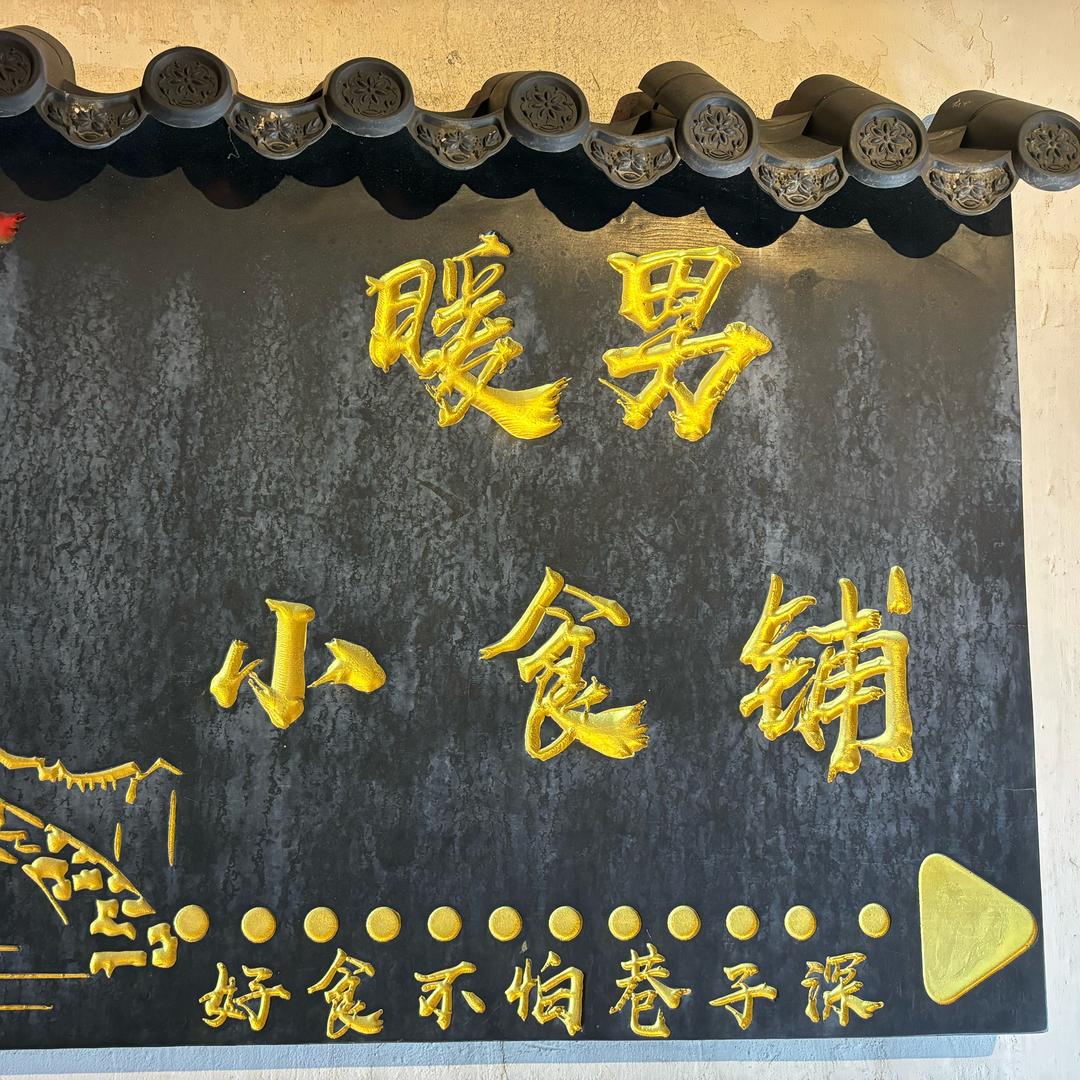 暖男
小食铺
好食不怕巷子深